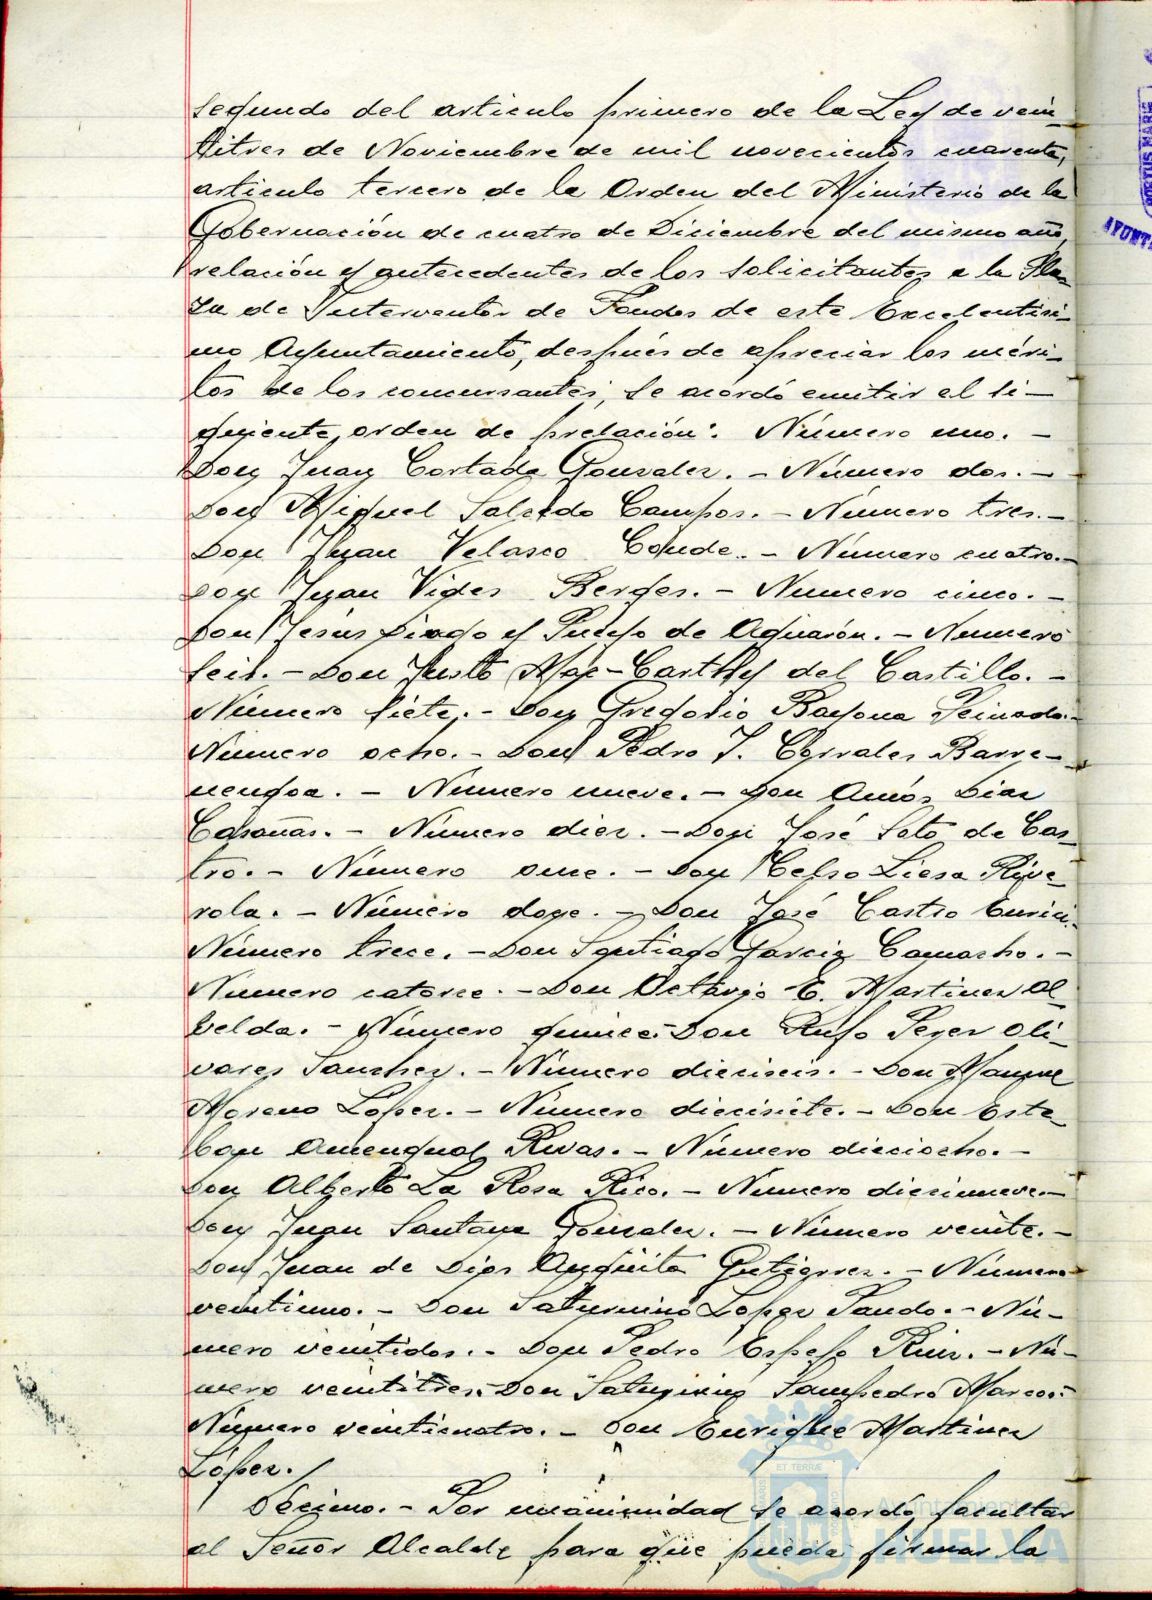 segundo del articulo primero de la Ley de vein-
titres de Noviembre de mil novecientos cuarenta,
articulo tercero de la Orden del Ministerio de la
Gobernación de cuatro de Diciembre del mismo año,
relación y antecedentes de los solicitantes a la Pla-
za de Interventor de Fondos de este Excelentísi-
mo Ayuntamiento, después de apreciar los méri-
tos de los concursantes, se acordó emitir el si-
guiente orden de prelación: Número uno. -
Don Juan Cortada Gonzalez. - Número dos. -
Don Miguel Salcedo Campos. - Número tres. -
Don Juan Velasco Conde. - Número cuatro. -
Don Juan Vides Berges. - Numero cinco. -
Don Jesús y Pueyo de Aguarón. - Numero
seis. - Don Justo Mac-Carthy del Castillo. -
Número siete. - Don Gregorio Bayona Peinado. -
Número ocho. - Don Pedro J. Corrales Barre-
nengoa. - Número nueve. - Don Amós Diaz
Casañas. - Número diez. - Don José Soto de Cas-
tro. - Número once. - Don Celso Liesa Rive-
rola. - Número doce. - Don José Castro
Número trece. - Don Santiago Garcia Camacho. -
Número catorce. - Don Octavio E. Martinez Al-
belda. - Número quince. - Don Rufo Perez Oli-
vares Sanchez. - Número dieciseis. - Don Manuel
Moreno Lopez. - Número diecisiete. - Don Este-
ban Amengual Rivas. - Número dieciocho. -
Don Alberto La Rosa Rico. - Número diecinueve. -
Don Juan Santana Gonzalez. - Número veinte. -
Don Juan de Dios Anguita Gutierrez. - Número
veintiuno. - Don Saturnino Lopez Pando. - Nú-
mero veintidos. - Don Pedro Espejo Ruiz. - Nú-
mero veintitres. - Don Saturnino Sampedro Marcos. -
Número veinticuatro. - Don Enrique Martinez
López.
Décimo. - Por unanimidad se acordó facultar
al Señor Alcalde para que pueda firmar la
PORTUS MARIS
AYUNTA
ET TERRÆ
Ayuntamiento de
HUELVA